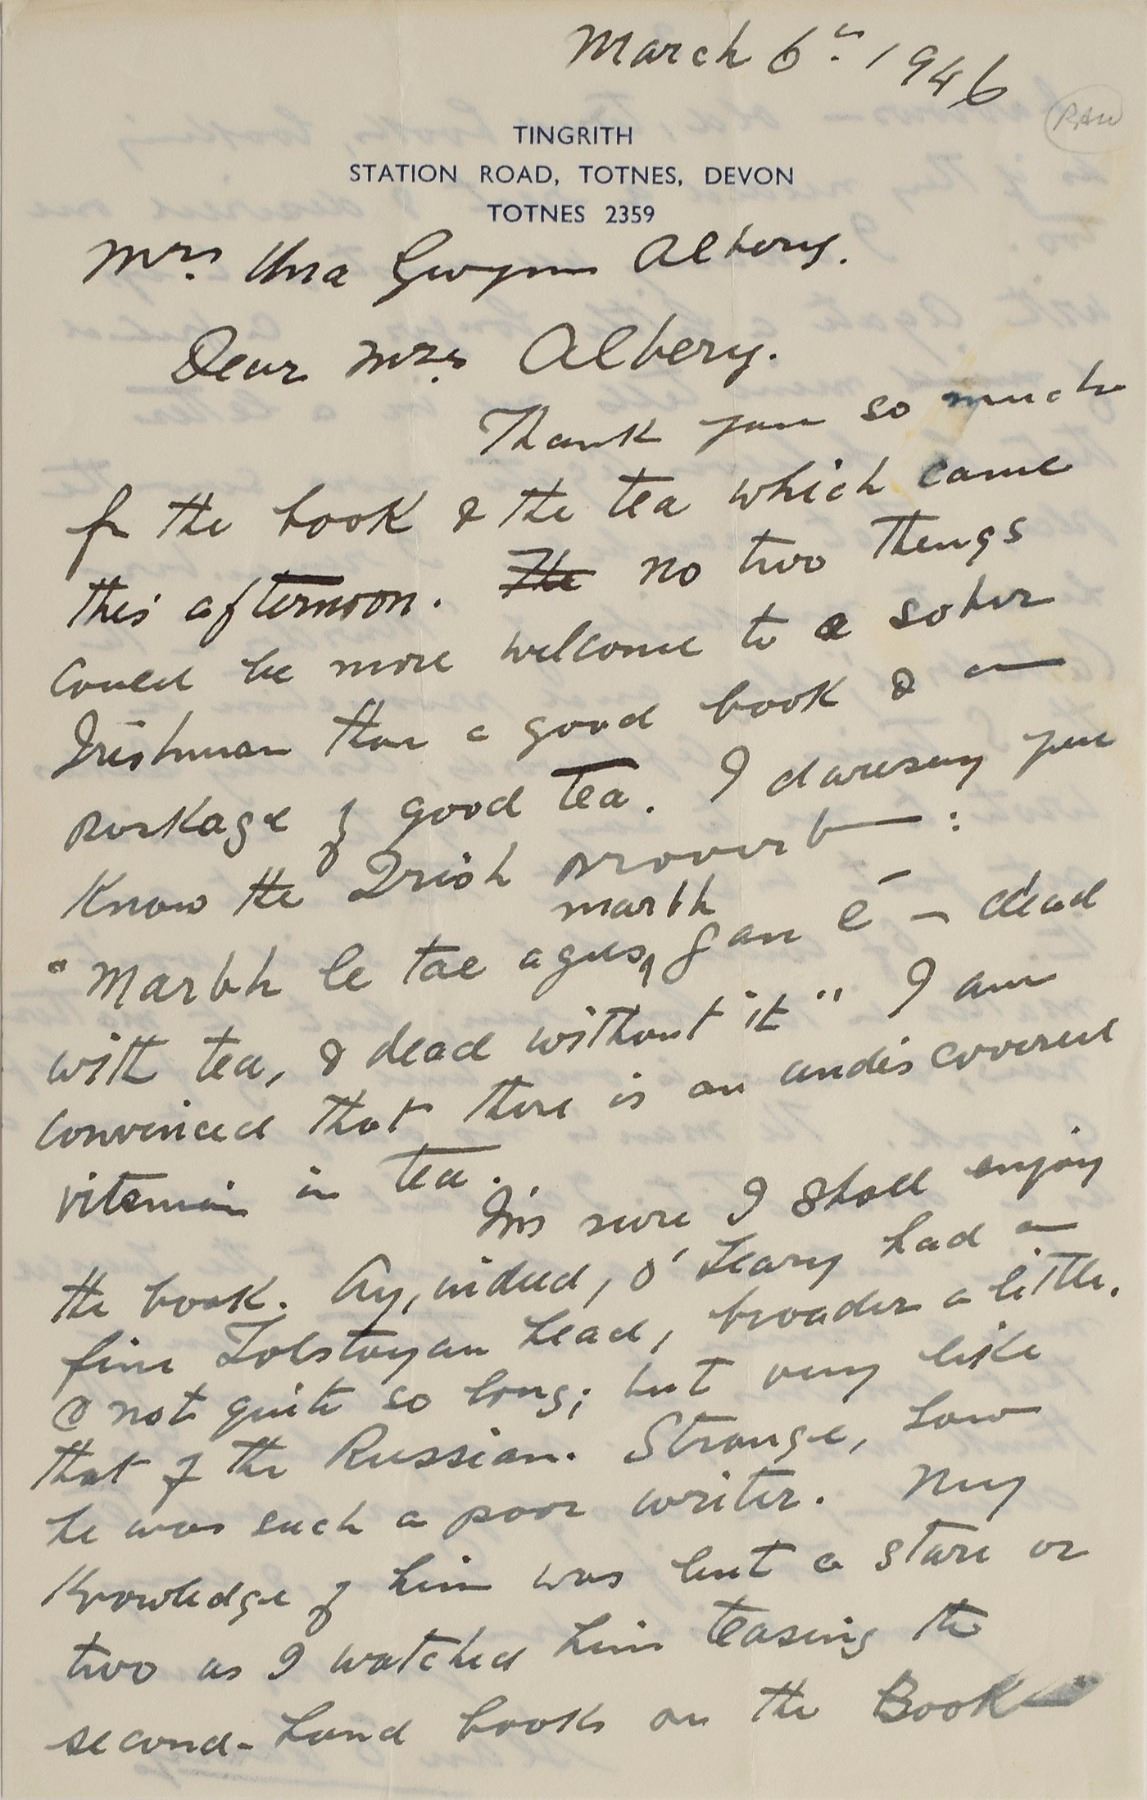 March 6th 1946
RAW
TINGRITH
STATION ROAD, TOTNES, DEVON
TOTNES 2359
Mrs Una Gwynn Albery.
Dear Mrs Albery.
Thank you so much
for the book & the tea which came
this afternoon. The no two things
could be more welcome to a sober
Irishman than a good book & a
package of good tea. I daresay you
know the Irish proverb:
marbh
"Marbh le tae agus, gan é — dead
with tea, & dead without it" I am
convinced that there is an undiscovered
vitamin in tea.
I'm sure I shall enjoy
the book. Ay, indeed, O'Leary had a
fine Tolstoyan head, broader a little,
& not quite so long; but very like
that of the Russian. Strange, how
he was such a poor writer. My
knowledge of him was but a stare or
two as I watched him teasing the
second-hand books on the Book